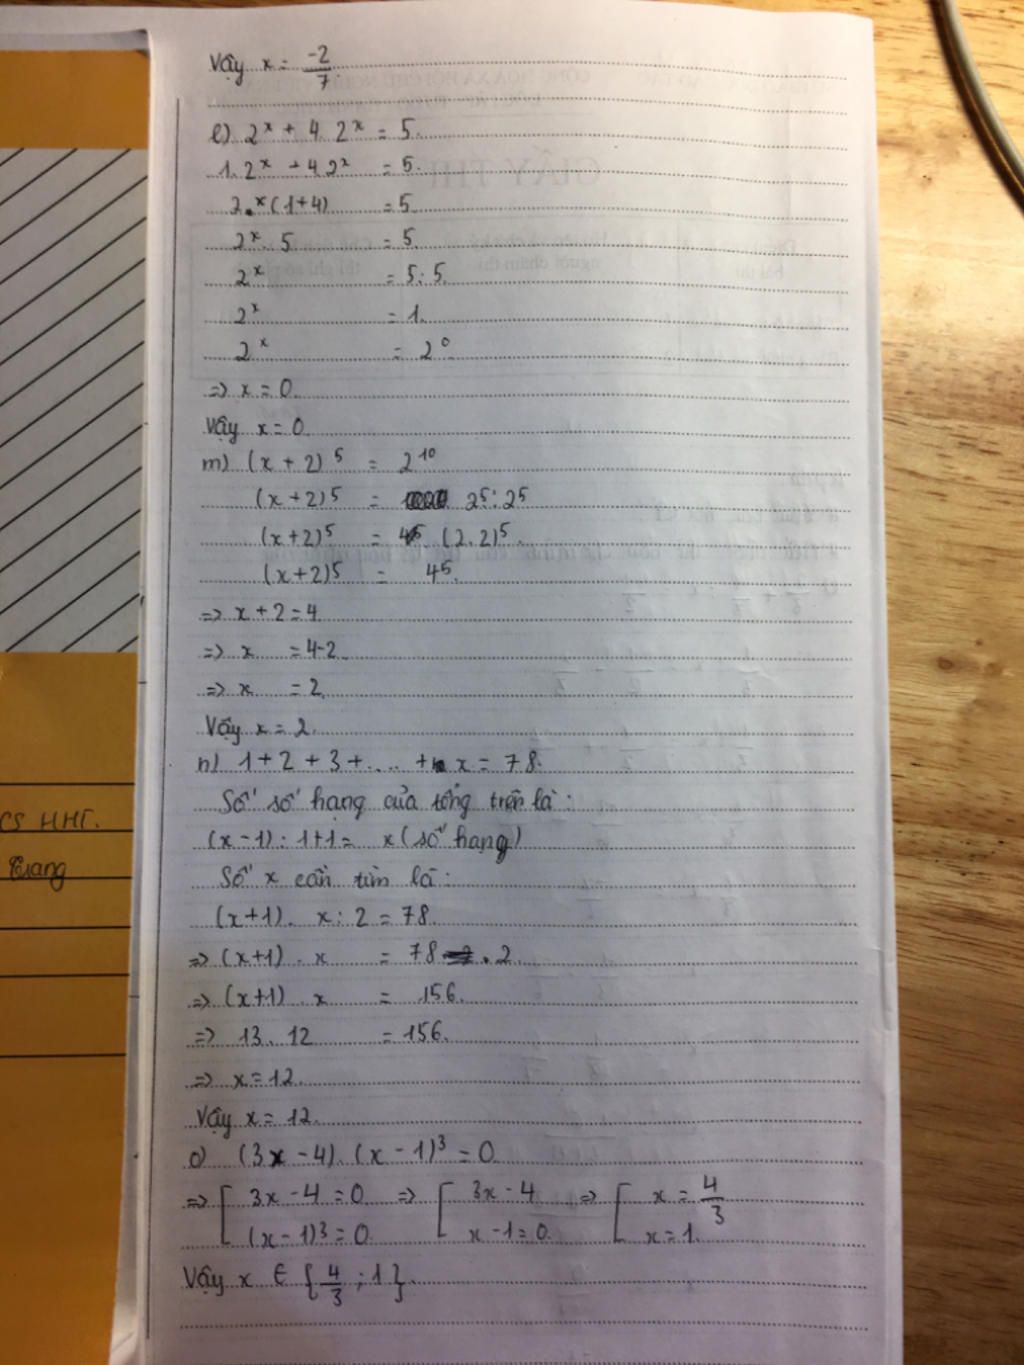 Vậy x = -2/7
l) 2^x + 4. 2^x = 5.
1. 2^x + 4 2^x = 5.
2.^x (1+4) = 5
2^x. 5 = 5
2^x = 5:5.
2^x = 1.
2^x = 2^0
=> x = 0.
Vậy x = 0
m) (x + 2)^5 = 2^10
(x+2)^5 = 2^5: 2^5
(x+2)^5 = (2.2)^5.
(x+2)^5 = 4^5.
=> x + 2 = 4
=> x = 4-2
=> x = 2
Vậy x = 2.
n) 1 + 2 + 3 + .... + x = 78.
Số số hạng của tổng trên là:
(x-1): 1+1 = x (số hạng)
Số x cần tìm là:
(x+1). x : 2 = 78.
=> (x+1) . x = 78 . 2.
=> (x+1) . x = 156.
=> 13. 12 = 156.
=> x = 12.
Vậy x = 12.
o) (3x - 4). (x - 1)^3 = 0
=> [ 3x - 4 = 0 => [ 3x - 4 => [ x = 4/3
(x - 1)^3 = 0 x - 1 = 0. x = 1.
Vậy x ∈ {4/3 ; 1}.
CS HHT.
Trang
GIẤY THI